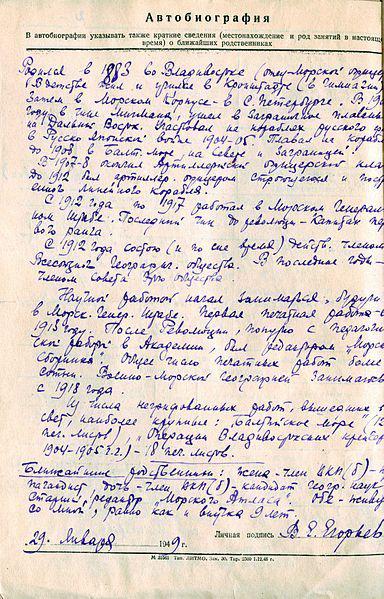 Автобиография
В автобиографии указывать также краткие сведения (местонахождение и род занятий в настоящ
время) о ближайших родственниках
Родился в 1883 во Владивостоке (отец - Морской офицер
В детстве жил и учился в Кронштадте (в гимназии
Затем в Морском Корпусе - в С. Петербурге. В 19
году в чине Мичмана, ушел в заграничное плавание
на Дальний Восток. Участвовал на кораблях русского ф
в Русско-Японской войне 1904-05. Плавал на кораб
до 1908 в Балт. море, на Севере и Заграницей.
В 1907-8 окончил Артиллерийский офицерский класс
до 1912 был артиллер. офицером строющегося и пос
линейного корабля.
С 1912 года по 1917 работал в Морском Генераль
ном штабе. Последний чин до революции - Капитан пе
вого ранга.
С 1912 года состою (и по сие время) действ. членом
Всесоюзного Географич. общества. В последние годы -
членом совета этого общества.
Научной работой начал заниматься, будучи
в Морск. Генер. Штабе. Первая печатная работа - с
1913 году. После Революции, попутно с педагогич
ской работой в Академии, был редактором "Морс
Сборника". Общее число печатных работ более
сотни. Военно-Морской географией занимаюсь
с 1918 года.
Из числа работ, вышедших в
свет, наиболее крупные: "Балтийское море" (12
печ. листов), "Операции Владивостокских крейсер
1904-1905 г.г.) - 18 печ. листов.
Ближайшие родственники: жена - член ВКП(б) - п
пагандист, дочь - член ВКП(б) - кандидат геогр. наук
Старший редактор "Морского Атласа". Обе - живу
со мной, равно как и внучка 9 лет.
29 Января 1949 г. Личная подпись В. Е. Егорьев